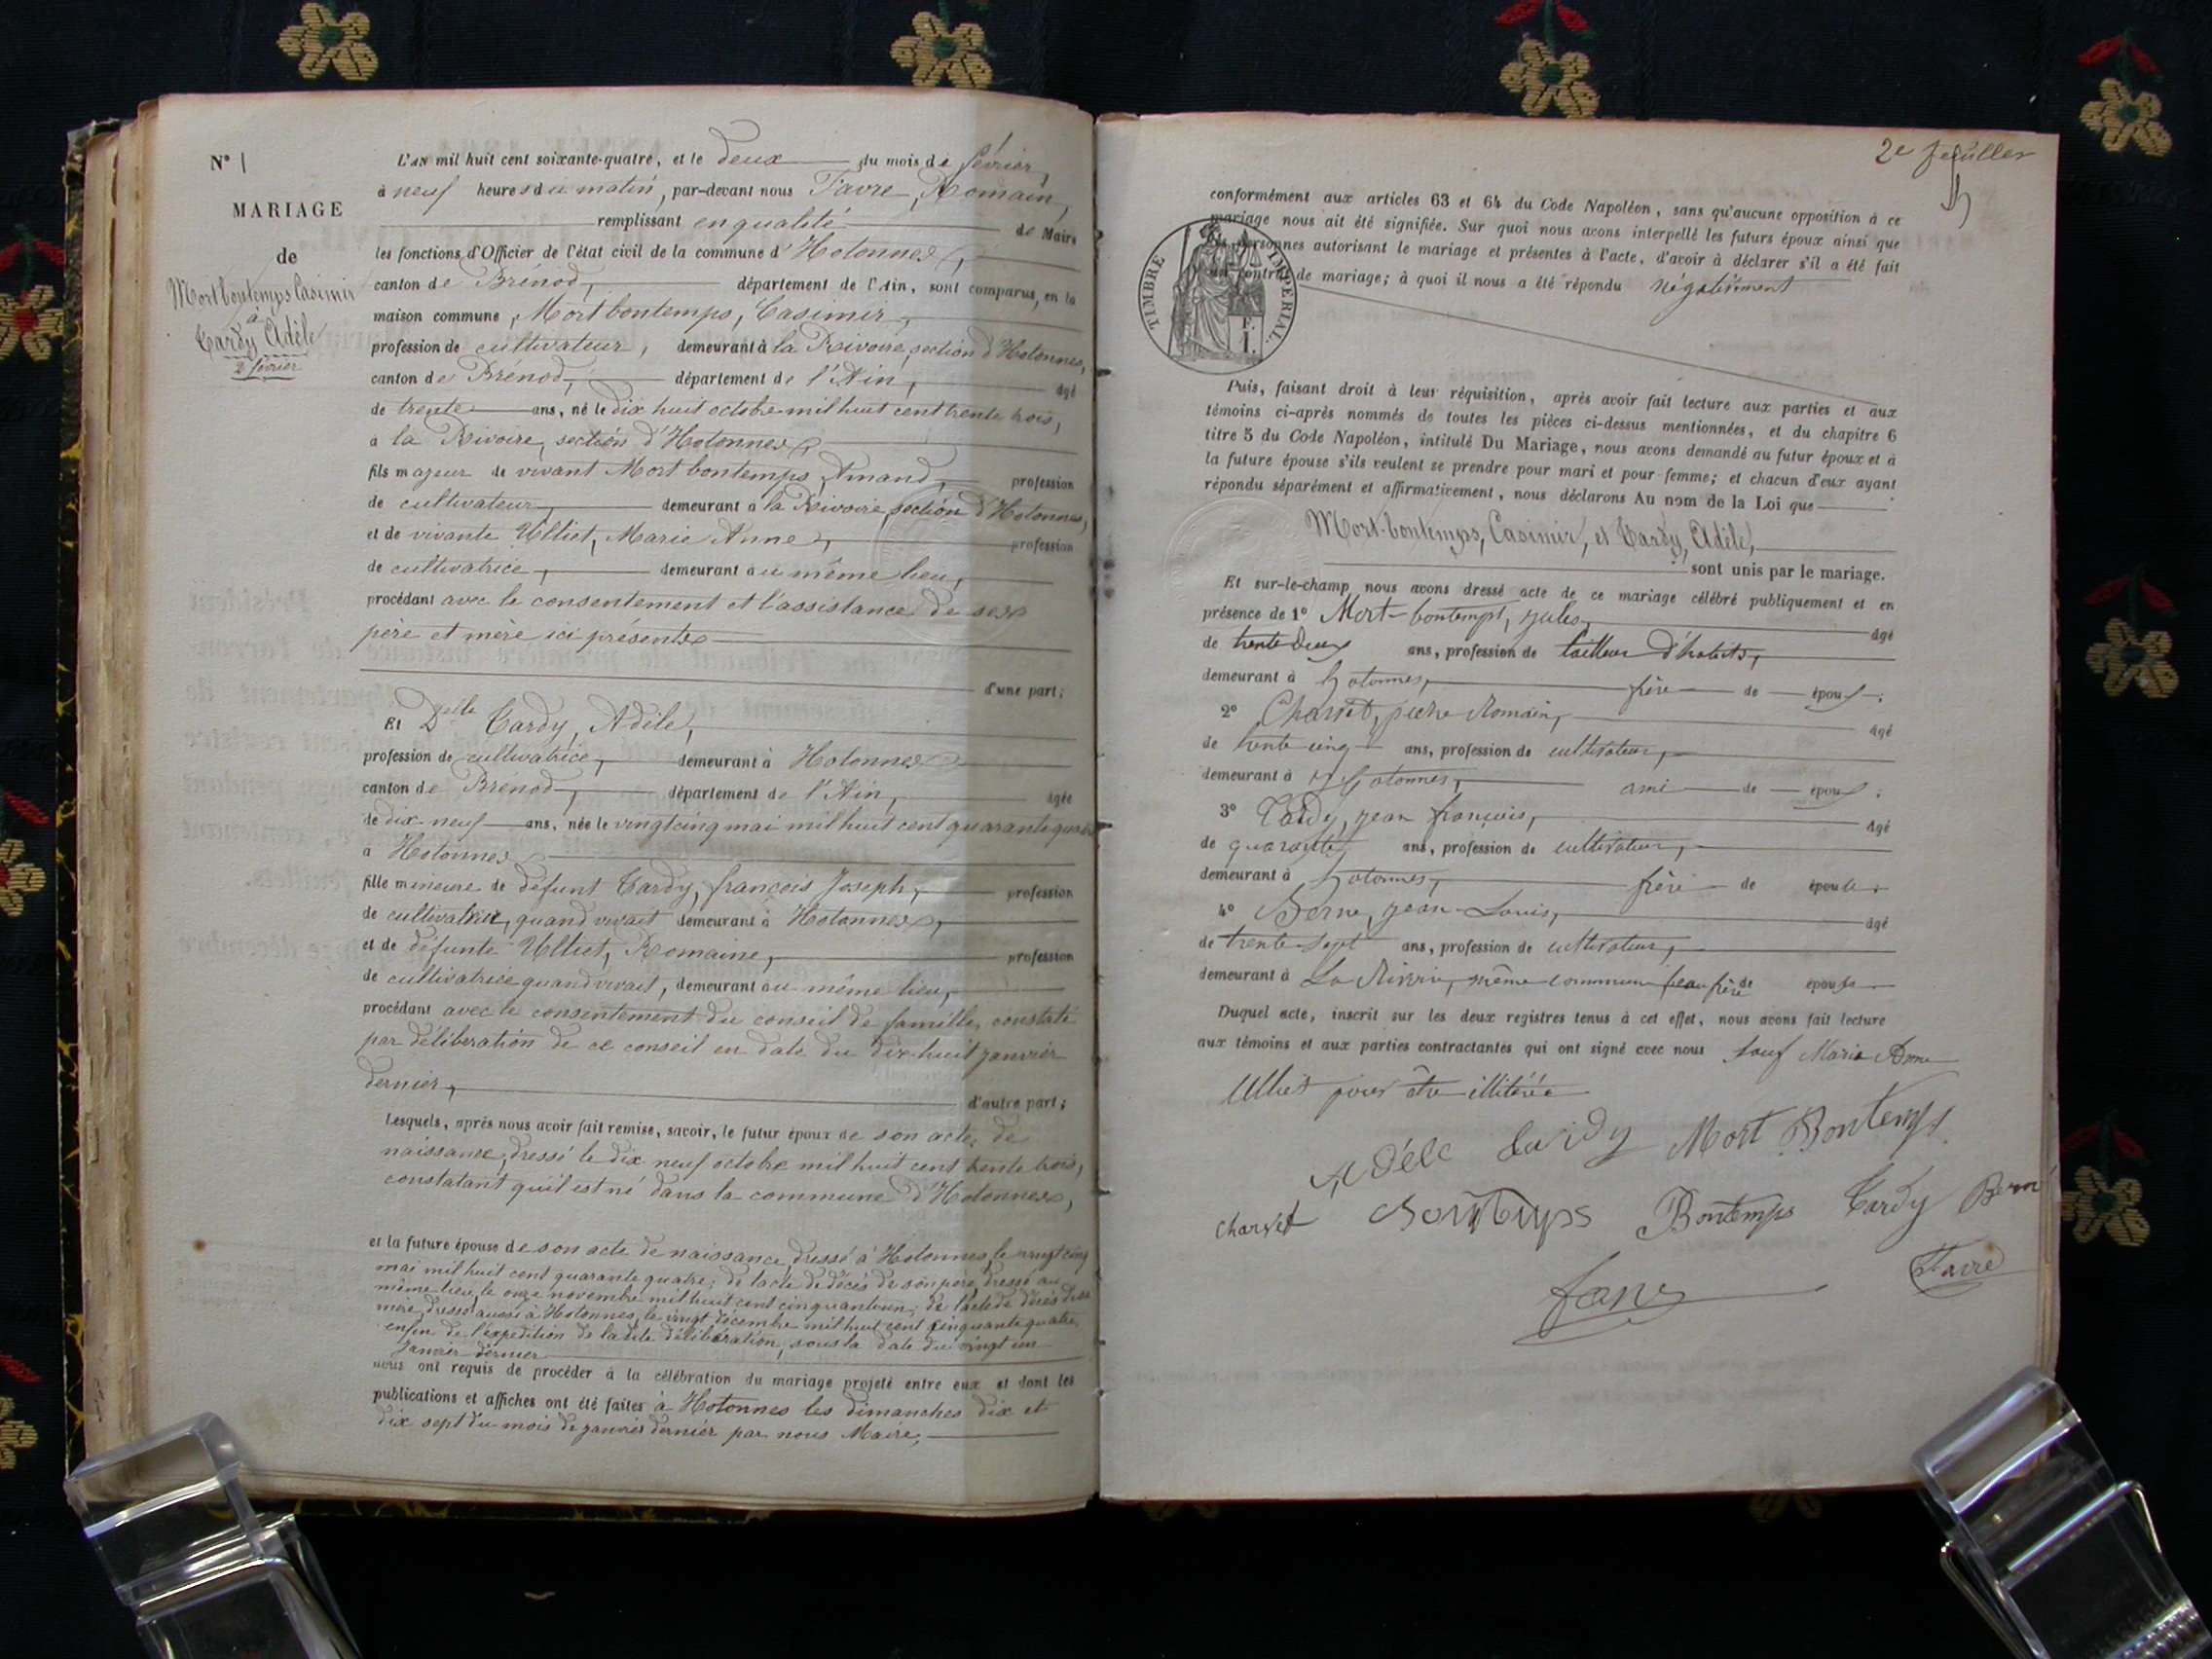 N° 1
MARIAGE
de
Mort bontemps Casimir
à
Tardy Adèle
2 février
L'AN mil huit cent soixante-quatre, et le deux du mois de février,
à neuf heures du matin, par-devant nous Favre, Romain,
remplissant en qualité de Maire
les fonctions d'Officier de l'état civil de la commune d'Hotonnes,
canton de Brénod, département de l'Ain, sont comparus, en la
maison commune, Mort bontemps, Casimir,
profession de cultivateur, demeurant à la Rivoire, section d'Hotonnes,
canton de Brénod, département de l'Ain, âgé
de trente ans, né le dix huit octobre mil huit cent trente trois,
à la Rivoire, section d'Hotonnes,
fils majeur de vivant Mort bontemps, Amand, profession
de cultivateur, demeurant à la Rivoire, section d'Hotonnes,
et de vivante Ulliet, Marie Anne, profession
de cultivatrice, demeurant au même lieu,
procédant avec le consentement et l'assistance de ses
père et mère ici présents
d'une part;
Et Delle Tardy, Adèle,
profession de cultivatrice, demeurant à Hotonnes
canton de Brénod, département de l'Ain, âgée
de dix neuf ans, née le vingt cinq mai mil huit cent quarante quatre
à Hotonnes
fille mineure de défunt Tardy, françois Joseph, profession
de cultivateur, quand vivait demeurant à Hotonnes,
et de défunte Ulliet, Romaine, profession
de cultivatrice quand vivait, demeurant au même lieu,
procédant avec le consentement du conseil de famille, constaté
par délibération de ce conseil en date du dix-huit janvier
dernier, d'autre part;
Lesquels, après nous avoir fait remise, savoir, le futur époux de son acte de
naissance, dressé le dix neuf octobre mil huit cent trente trois,
constatant qu'il est né dans la commune d'Hotonnes,
et la future épouse de son acte de naissance, dressé à Hotonnes, le vingt cinq
mai mil huit cent quarante quatre; de l'acte de décès de son père, dressé au
même lieu, le onze novembre mil huit cent cinquante un; de l'acte de décès de sa
mère, dressé aussi à Hotonnes, le vingt décembre mil huit cent cinquante quatre
enfin de l'expédition de ladite délibération, sous la date du vingt un
janvier dernier
nous ont requis de procéder à la célébration du mariage projeté entre eux et dont les
publications et affiches ont été faites à Hotonnes les dimanches dix et
dix sept du mois de janvier dernier par nous Maire,
2e feuillet
conformément aux articles 63 et 64 du Code Napoléon, sans qu'aucune opposition à ce
mariage nous ait été signifiée. Sur quoi nous avons interpellé les futurs époux ainsi que
les personnes autorisant le mariage et présentes à l'acte, d'avoir à déclarer s'il a été fait
un contrat de mariage; à quoi il nous a été répondu négativement
TIMBRE IMPERIAL.
Puis, faisant droit à leur réquisition, après avoir fait lecture aux parties et aux
témoins ci-après nommés de toutes les pièces ci-dessus mentionnées, et du chapitre 6
titre 5 du Code Napoléon, intitulé Du Mariage, nous avons demandé au futur époux et à
la future épouse s'ils veulent se prendre pour mari et pour femme; et chacun d'eux ayant
répondu séparément et affirmativement, nous déclarons Au nom de la Loi que
Mort-bontemps, Casimir, et Tardy, Adèle,
sont unis par le mariage.
Et sur-le-champ nous avons dressé acte de ce mariage célébré publiquement et en
présence de 1° Mort-bontemps, jules, âgé
de trente deux ans, profession de tailleur d'habits,
demeurant à hotonnes, frère de époux;
2° Charvet, pierre Romain, âgé
de trente cinq ans, profession de cultivateur,
demeurant à hotonnes, ami de époux;
3° Tardy, jean françois, âgé
de quarante ans, profession de cultivateur,
demeurant à hotonnes, frère de épouse
4° Berne, jean-Louis, âgé
de trente-sept ans, profession de cultivateur,
demeurant à La Rivoire, même commune beau frère de épouse
Duquel acte, inscrit sur les deux registres tenus à cet effet, nous avons fait lecture
aux témoins et aux parties contractantes qui ont signé avec nous sauf Marie Anne
Ulliet pour être illitérée
Adéle Tardy Mort Bontemps
Charvet Bontemps Bontemps Tardy Berne
Favre